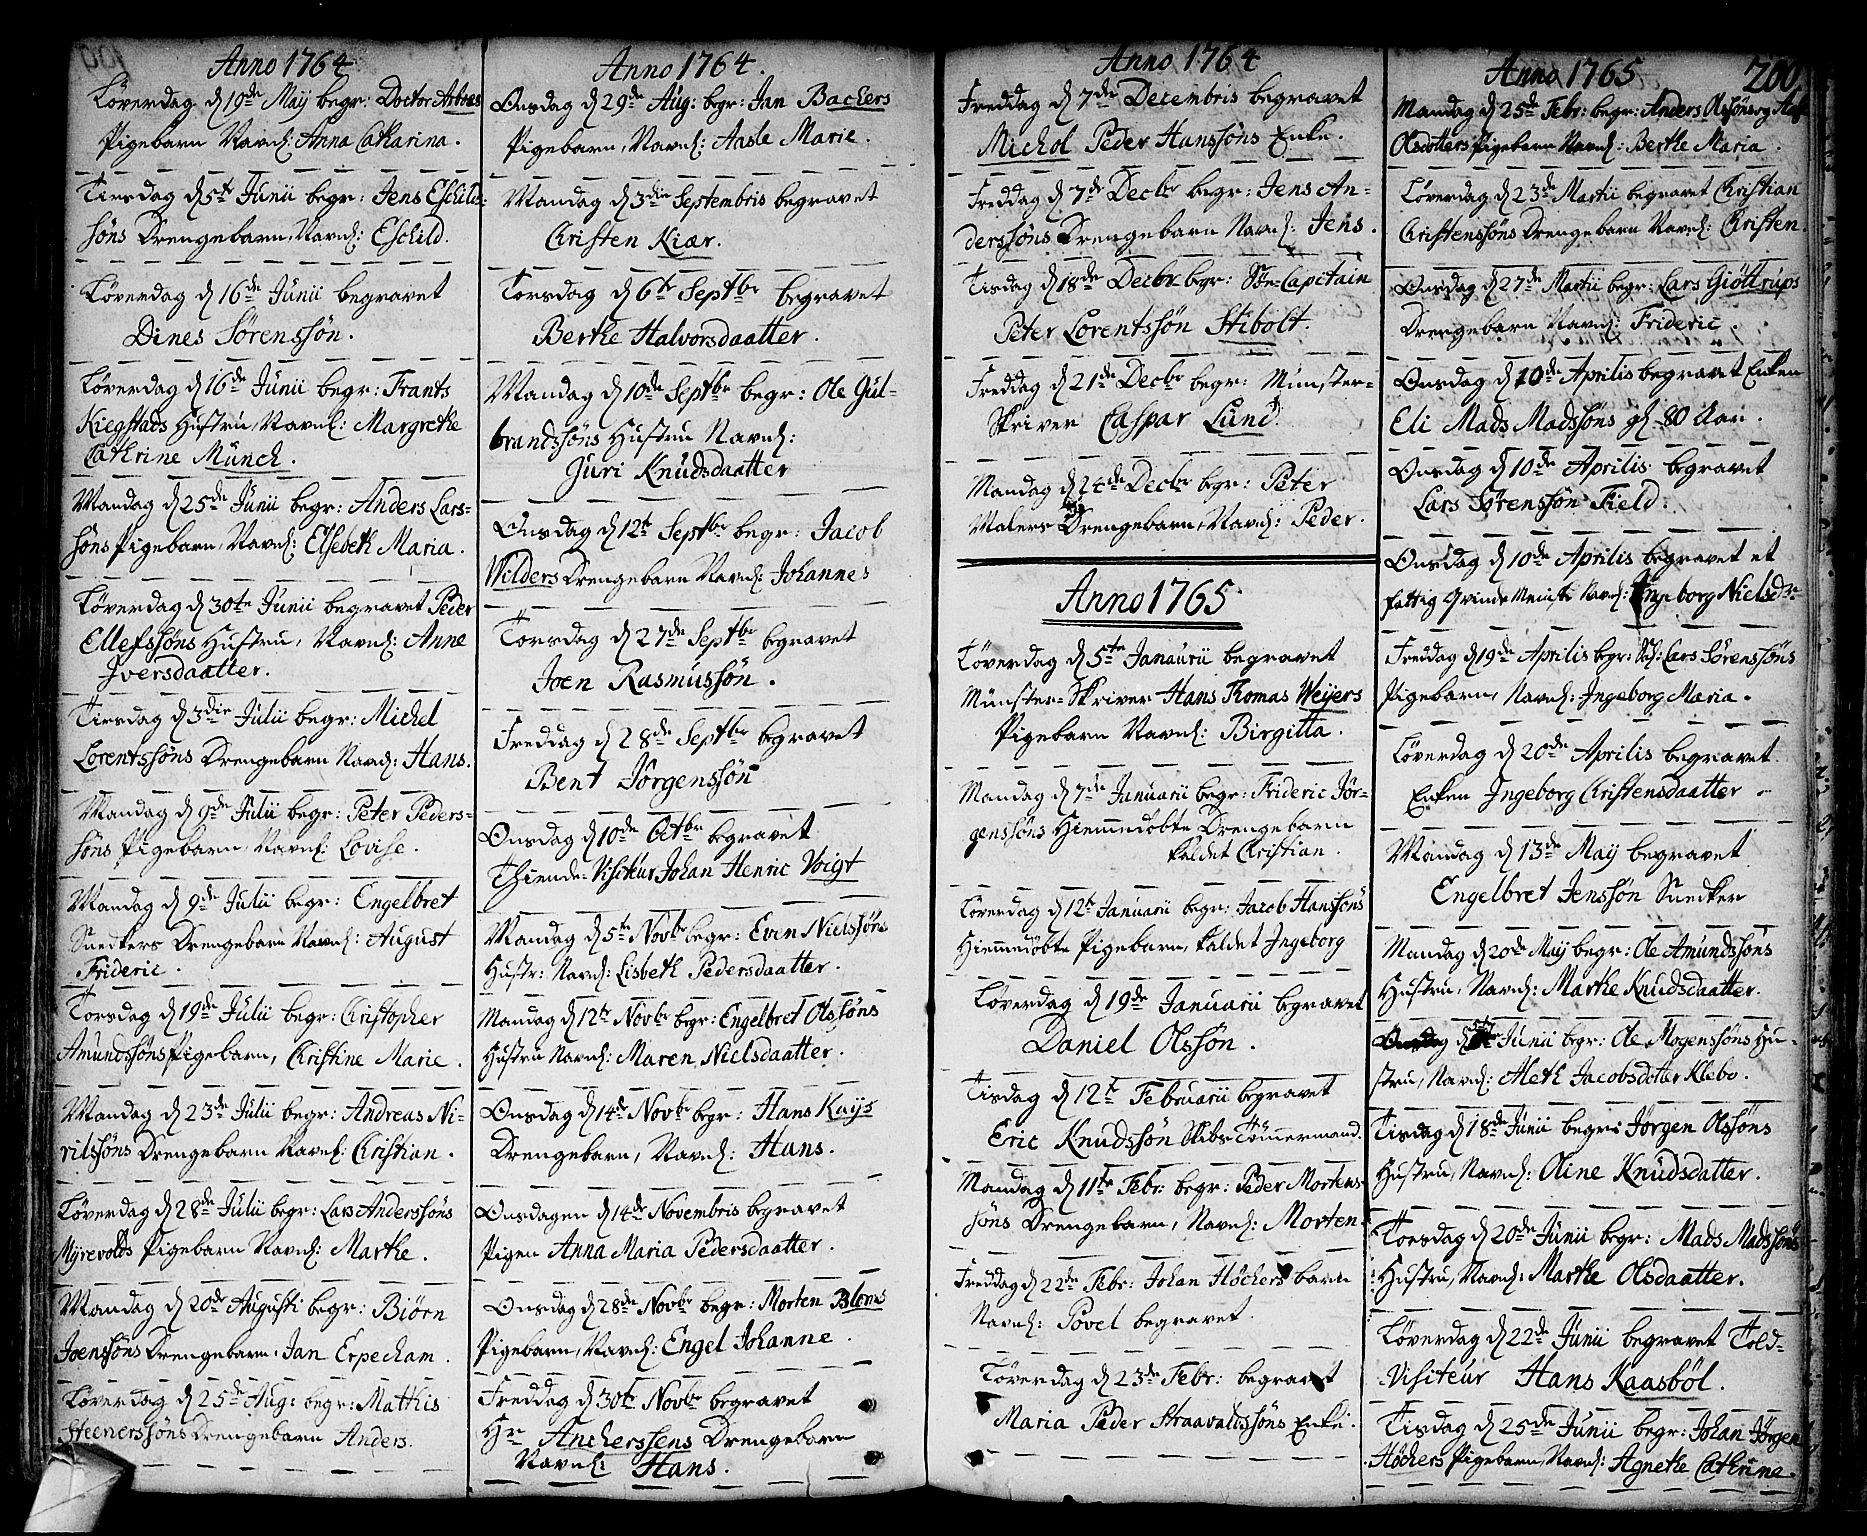 Anno 1764
Løverdag d 19de Maij begr: Doctor Arboes
Pigebarn Navnl: Anna Catharina.
Tirsdag d 5te Junii begr: Jens Eschils-
søns Drengebarn, Navnl: Eschild.
Løverdag d 16de Junii begravet
Dines Sørenssøn.
Løverdag d 16de Junii begr: Frants
Kiegstads Hustru, Navnl: Margrethe
Cathrine Münch.
Mandag d 25de Junii begr: Anders Lars-
søns Pigebarn, Navnl: Elsebeth Maria.
Løverdag d 30te Junii begravet Peder
Ellefssøns Hustru, Navnl: Anne
Iversdaatter.
Tirsdag d 3die Julii begr: Michel
Lorentssøns Drengebarn Navnl: Hans.
Mandag d 9de Julii begr: Peter Peders-
søns Pigebarn, Navnl: Lovise.
Mandag d 9de Julii begr: Engelbret
Snedkers Drengebarn Navnl: August
Frideric.
Torsdag d 19de Julii begr: Christopher
Amundssøns Pigebarn, Christine Marie.
Mandag d 23de Julii begr: Andreas Ni-
rilssøns Drengebarn Navnl: Christian.
Løverdag d 28de Julii begr: Lars Anderssøns
Myrevolds Pigebarn Navnl: Marthe.
Mandag d 20de Augusti begr: Biørn
Joenssøns Drengebarn, Jan Erpecham.
Løverdag d 25de Aug: begr: Mathis
Steenerssøns Drengebarn Anders.
Anno 1764.
Onsdag d 29de Aug: begr: Jan Bachers
Pigebarn, Navnl: Aasle Marie.
Mandag d 3die Septembris begravet
Christen Kiær.
Torsdag d 6te Septbr begravet
Berthe Halvorsdaatter.
Mandag d 10de Septbr begr: Ole Gul-
brandssøns Hustru Navnl:
Guri Knudsdaatter
Onsdag d 12te Septbr begr: Jacob
Wilders Drengebarn Navnl: Johannes
Torsdag d 27de Septbr begravet
Joen Rasmussøn.
Freddag d 28de Septbr begravet
Bent Jørgenssøn
Onsdag d 10de Octbr begravet
Thiende-Visiteur Johan Henric Voigt
Mandag d 5te Novbr begr: Even Nielssøns
Hustr: Navnl: Lisbeth Pedersdaatter.
Mandag d 12te Novbr begr: Engelbret Olssøns
Hustru Navnl: Maren Nielsdaatter.
Onsdag d 14de Novbr begr: Hans Kuijs
Drengebarn, Navnl: Hans.
Onsdagen d 14de Novembris begravet
Pigen Anna Maria Pedersdaatter.
Onsdag d 28de Novbr begr: Morten Bloms
Pigebarn, Navnl: Engel Johanne.
Freddag d 30te Novbr begravet
Hr Ancherssens Drengebarn
Navnl: Hans.
Anno 1764
Freddag d 7de Decembris begravet
Michol Peder Hanssøns Enke.
Freddag d 7de Decbr begr: Jens An-
derssøns Drengebarn Navnl: Jens.
Tisdag d 18de Decbr begr: Søe-Capitain
Peter Lorentssøn Stibolt.
Freddag d 21de Decbr begr: Münster-
Skriver Caspar Lund.
Mandag d 24de Decbr begr: Peter
Malers Drengebarn, Navnl: Peder.
Anno 1765
Løverdag d 5te Janaurii begravet
Münster-Skriver Hans Thomas Weijers
Pigebarn Navnl: Birgitta.
Mandag d 7de Januarii begr: Frideric Jør-
genssøns Hiemmedøbte Drengebarn
kaldet Christian.
Løverdag d 12te Januarii begr: Jacob Hanssøns
Hiemmedøbte Pigebarn, kaldet Ingeborg
Løverdag d 19de Januarii begravet
Daniel Olssøn.
Tisdag d 12te Februarii begravet
Eric Knudssøn Skibs-Tømmermand.
Mandag d 11te Febr: begr: Peder Mortens-
søns Drengebarn, Navnl: Morten.
Freddag d 22de Febr: Johan Høchers barn
Navnl: Povel begravet.
Løverdag d 23de Febr: begravet
Maria Peder Straavaldssøns Enke.
Anno 1765
200
Mandag d 25de Febr: begr: Anders Olssøns og
Olsdotters Pigebarn Navnl: Berthe Maria.
Løverdag d 23de Martii begravet Christian
Christenssøns Drengebarn Navnl: Christen.
Onsdag d 27de Martii begr: Lars Giøttrups
Drengebarn Navnl: Frideric.
Onsdag d 10de Aprilis begravet Enken
Eli Mads Madssøns gl 80 Aar.
Onsdag d 10de Aprilis begravet
Lars Sørenssøn Field.
Onsdag d 10de Aprilis begravet et
fattig Qvinde Meniske Navnl: Ingeborg Nielsdr
Freddag d 19de Aprilis begr: Lars Sørenssøns
Pigebarn, Navnl: Ingeborg Maria.
Løverdag d 20de Aprilis begravet
Enken Ingeborg Christensdaatter
Mandag d 13de Maij begravet
Engelbret Jenssøn Snedker
Mandag d 20de Maij begr: Ole Amundssøns
Hustru, Navnl: Marthe Knudsdaatter.
Onsdag d Junii begr: Ole Mogenssøns Hu-
stru, Navnl: Aleth Jacobsdotter Klebo.
Tisdag d 18de Junii begr: Jørgen Olssøns
Hustru, Navnl: Oline Knudsdatter.
Torsdag d 20de Junii begr: Mads Madssøns
Hustru, Navnl: Marthe Olsdaatter.
Løverdag d 22de Junii begravet Told-
Visiteur Hans Kaasbøl.
Tisdag d 25de Junii begr: Johan Jørgen
Høchers Pigebarn, Navnl: Agnethe Cathrine.